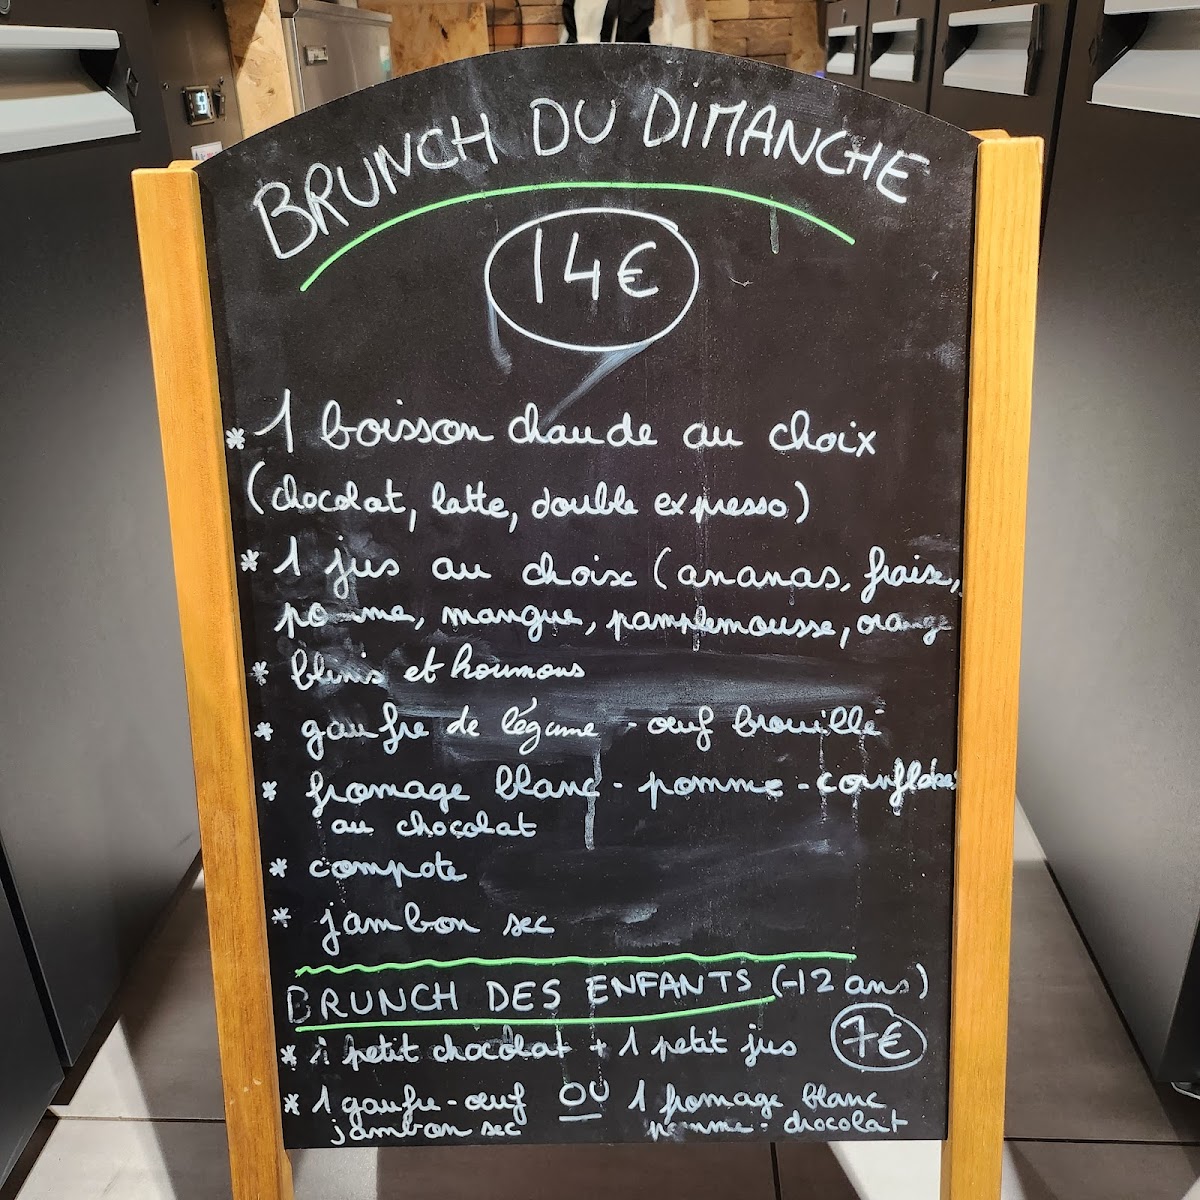 BRUNCH DU DIMANCHE
14€
* 1 boisson chaude au choix
(chocolat, latte, double expresso)
* 1 jus au choix (ananas, fraise,
pomme, mangue, pamplemousse, orange
* blinis et houmous
* gaufre de légume - œuf brouillé
* fromage blanc - pomme - cornflakes
au chocolat
* compote
* jambon sec
BRUNCH DES ENFANTS (-12 ans)
* 1 petit chocolat + 1 petit jus 7€
* 1 gaufre - œuf OU 1 fromage blanc
jambon sec pomme - chocolat